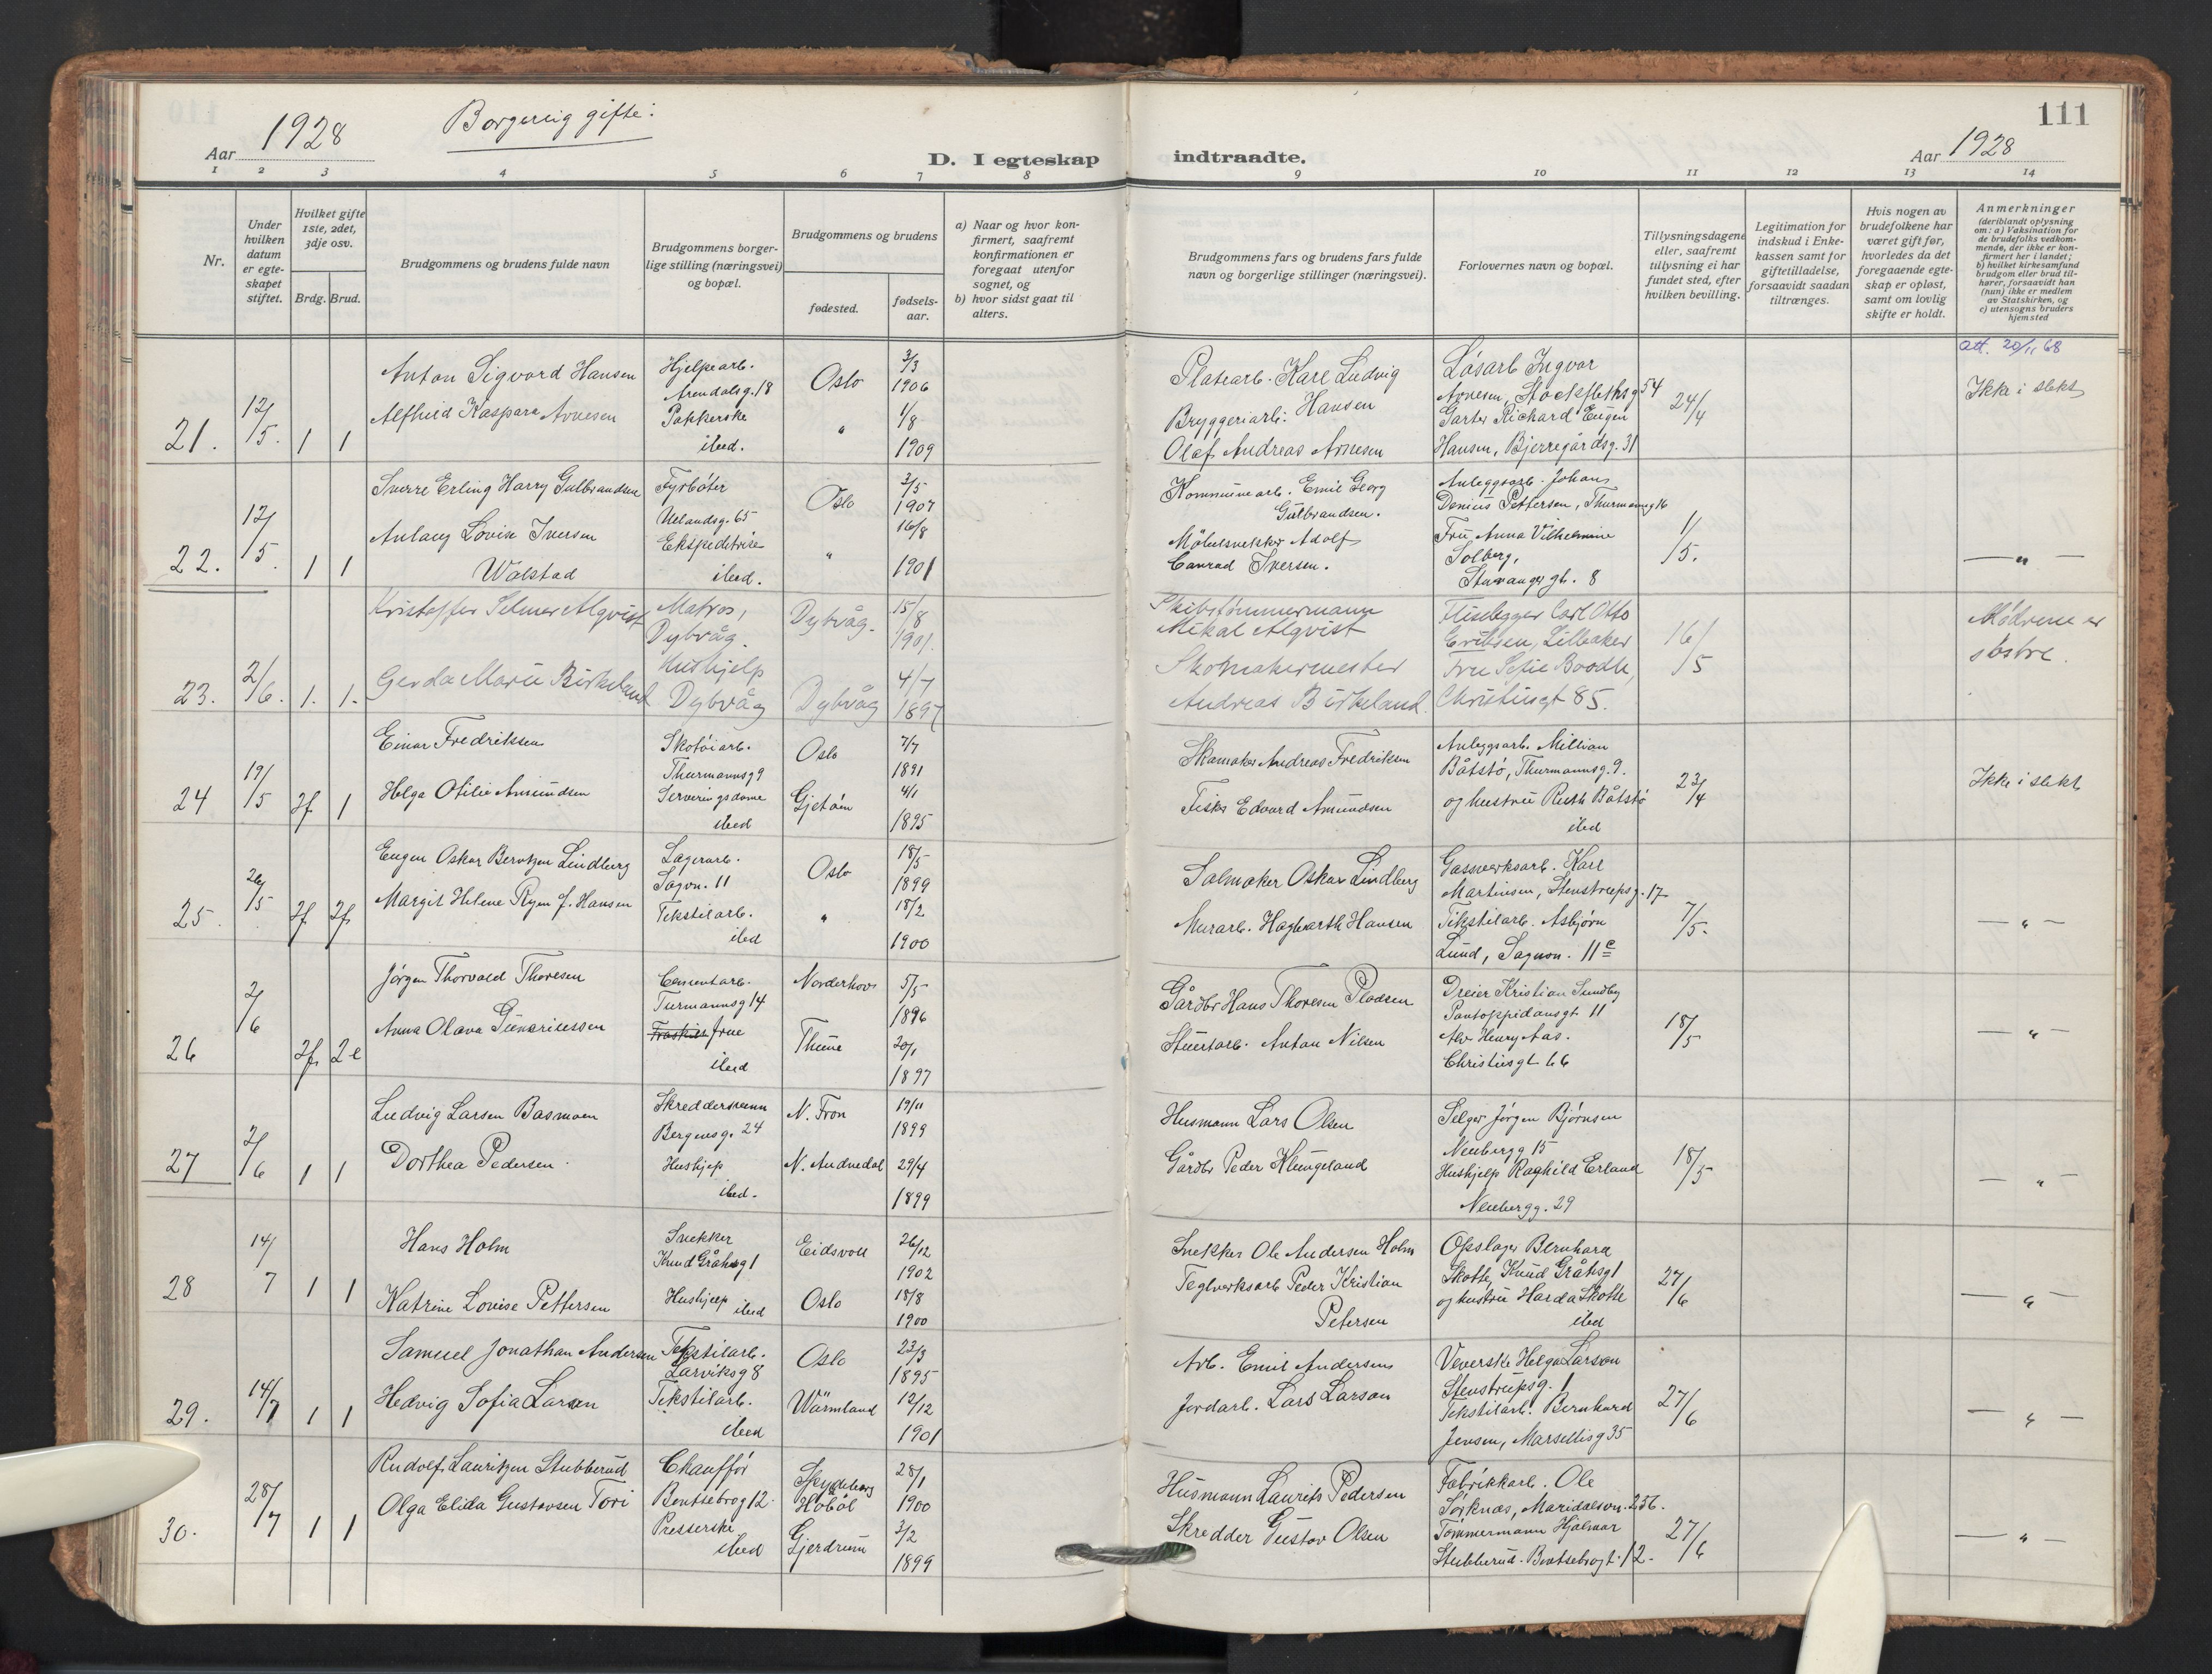 111
Borgerlig gifte:
Aar 1928
D. I egteskap indtraadte.
Aar 1928
1 2 3 4 5 6 7 8 9 10 11 12 13 14
Nr.
Under hvilken datum er egteskapet stiftet.
Hvilket gifte 1ste, 2det, 3dje osv.
Brdg. Brud.
Brudgommens og brudens fulde navn
Brudgommens borgerlige stilling (næringsvei) og bopæl.
Brudgommens og brudens
fødested.
fødselsaar.
a) Naar og hvor konfirmert, saafremt konfirmationen er foregaat utenfor sognet, og
b) hvor sidst gaat til alters.
Brudgommens fars og brudens fars fulde navn og borgerlige stillinger (næringsvei).
Forlovernes navn og bopæl.
Tillysningsdagene eller, saafremt tillysning ei har fundet sted, efter hvilken bevilling.
Legitimation for indskud i Enkekassen samt for giftetilladelse, forsaavidt saadan tiltrænges.
Hvis nogen av brudefolkene har været gift før, hvorledes da det foregaaende egteskap er opløst, samt om lovlig skifte er holdt.
Anmerkninger
(deriblandt oplysning om: a) Vaksination for de brudefolks vedkommende, der ikke er konfirmert her i landet; b) hvilket kirkesamfund brudgom eller brud tilhører, forsaavidt han (hun) ikke er medlem av Statskirken, og c) utensogns bruders hjemsted
21. 12/5. 1 1
Anton Sigvard Hansen
Alfhild Kaspara Arnesen
Hjelpearb.
Arendalsg. 18
Pakkerske
ibid.
Oslo
"
3/3
1906
1/8
1909
Platearb. Karl Ludvig
Hansen
Bryggeriarb:
Olaf Andreas Arnesen
Løsarb Ingvar
Arnesen, Stockflethsg 54
Garter Richard Eugen
Hansen, Bjerregårdsg. 31
24/4
att. 20/11 68
Ikke i slekt
22. 12/5. 1 1
Sverre Erling Harry Gulbrandsen
Aslaug Lovise Iversen
Wolstad
Fyrbøter
Uelandsg. 65
Ekspeditrise
ibid.
Oslo
"
3/5
1907
16/8
1901
Kommunearb. Emil Georg
Gulbrandsen.
Møbelsnekker Adolf
Conrad Iversen.
Anleggsarb. Johan
Denius Pettersen, Thurmannsg 16
Fru Anna Vilhelmine
Solberg,
Stavanger gt. 8
1/5.
— " —
23. 2/6. 1. 1.
Kristoffer Selmer Alqvist
Gerda Marie Birkeland
Matros,
Dybvåg.
Hushjelp
Dybvåg
Dybvåg.
Dybvåg
15/8
1901.
4/7
1897
Skibstømmermann
Mikal Alqvist
Skomakermester
Andreas Birkeland.
Fliselegger Carl Otto
Eriksen, Lilleaker
Fru Sofie Boodtke,
Christiesgt 85.
16/5
Mødrene er
søstre.
24 19/5 2f 1
Einar Fredriksen
Helga Otilie Amundsen
Skotøiarb.
Thurmannsg 9
Serveringsdame
ibid
Oslo
Gjetøen
7/7
1891
4/1
1895
Skomaker Andreas Fredriksen
Fisker Edvard Amundsen
Anleggsarb. Million
Båtstø, Thurmannsg. 9.
og hustru Ruth Båtstø
ibid
23/4
Ikke i slekt
25. 26/5 2f 2f
Eugen Oskar Berntzen Lindberg
Margit Helene Ryen f. Hansen
Lagerarb.
Sagvn. 11
Tekstilarb.
ibid
Oslo
"
18/5
1899
18/2
1900
Salmaker Oskar Lindberg
Murarb. Hagbarth Hansen
Gassverksarb. Karl
Martinsen, Stenstrupsg. 17
Tekstilarb. Asbjørn
Lund, Sagvn. 11 c
7/5.
— " —
26 2/6 2f 2e
Jørgen Thorvald Thoresen
Anna Olava Guneriussen
Cementarb.
Turmannsg 14
frue
ibid
Norderhov
Thune
5/5
1896
20/1
1897
Gårdbr Hans Thoresen Plodsen
Stuertarb. Anton Nilsen
Dreier Kristian Sundby
Pontoppidansgt 11
Arb Henry Aas.
Christiesgt 66
18/5
— " —
27 2/6 1 1
Ludvig Larsen Basmoen
Dorthea Pedersen.
Skreddersvenn
Bergensg. 24
Hushjelp
ibid.
N. Fron
N. Audnedal
19/11
1899
29/4
1899
Husmann Lars Olsen
Gårdbr Peder Klungeland
Selger Jørgen Bjørnsen
Neubergg 15
Hushjelp Raghild Erland
Neubergg. 29
18/5
— " —
28 14/7 1 1
Hans Holm
Katrine Lovise Pettersen
Snekker
Knud Gråhsg 1
Hushjelp ibid
Eidsvoll
Oslo
26/12
1902
18/8
1900
Snekker Ole Andersen Holm
Teglverksarb Peder Kristian
Petersen
Opslager Bernhard
Skotte, Knud Gråhsg 1
og hustru Harda Skotte
ibid
27/6
— " —
29. 14/7 1 1
Samuel Jonathan Andersen
Hedvig Sofia Larson
Tekstilarb.
Larviksg 8
Tekstilarb.
ibid
Oslo
Wärmland
23/3
1895
12/12
1901
Arb. Emil Andersen
Jordarb. Lars Larson
Veverske Helga Larson
Stenstrupsg. 1
Tekstilarb. Bernhard
Jensen, Marsellisg 35
27/6
— " —
30. 28/7 1 1
Rudolf Lauritzen Stubberud
Olga Elida Gustavsen Tori
Chauffør
Bentsebrog 12.
Presserske
ibid
Spydeberg
Hobøl
Gjerdrum
28/1
1900
3/2
1899
Husmann Laurits Pedersen
Skredder Gustav Olsen
Fabrikkarb. Ole
Sørknes, Maridalsvn. 236.
Tømmermann Hjalmar
Stubberud. Bentsebrogt. 12.
27/6
— " —